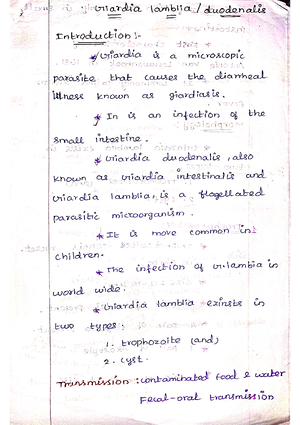 Giardia lamblia / duodenalis
Introduction :-
* Giardia is a microscopic
parasite that causes the diarrheal
illness known as giardiasis.
* In is an infection of the
small intestine.
* Giardia duodenalis, also
known as Giardia intestinalis and
Giardia lamblia, is a flagellated
parasitic microorganism.
* It is move common in
children.
* The infection of G.lambia in
world wide.
* Giardia lamblia exinsts in
two types;
1. trophozoite (and)
2. cyst.
Transmission : contaminated food & water
Fecal-oral transmission